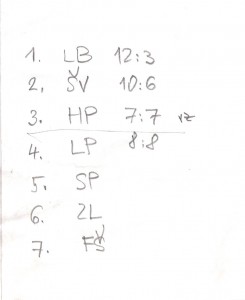 1. LB 12:3
2. ŠV 10:6
3. HP 7:7 vz
4. LP 8:8
5. SP
6. ZL
7. FŠ